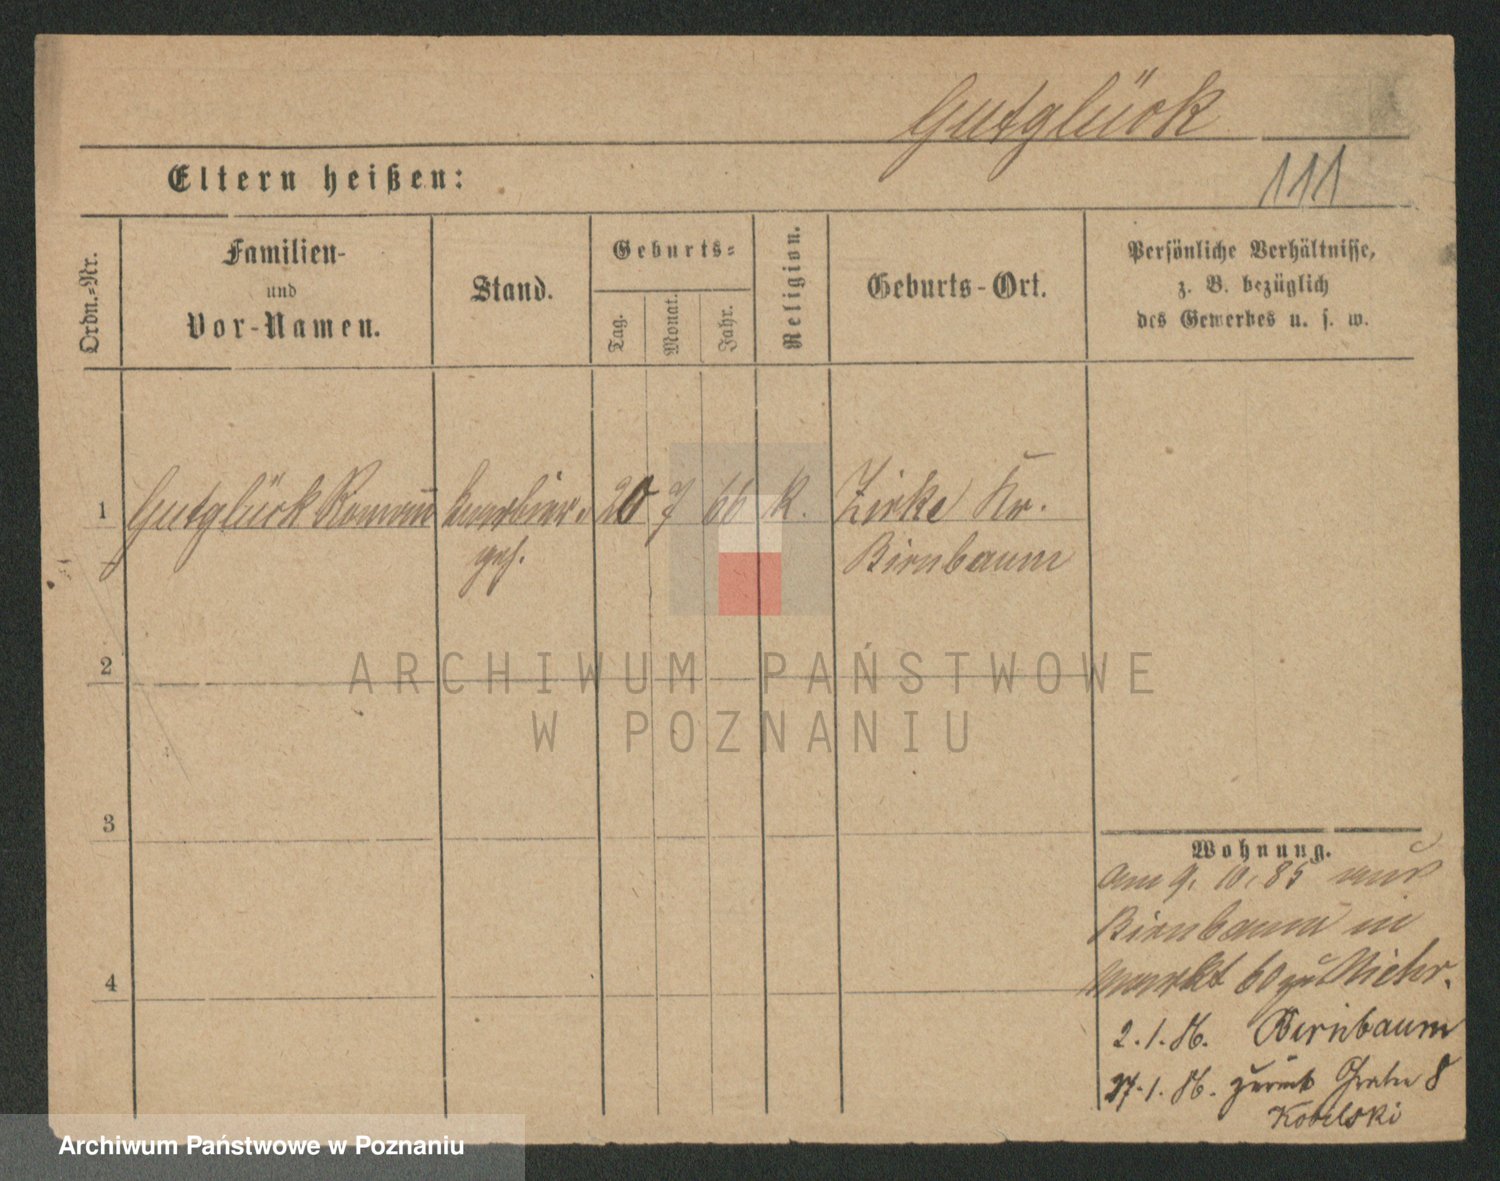 Gutglück
111
Eltern heißen:
Ordn.-Nr.
Familien-
und
Vor-Namen.
Stand.
Geburts-
Tag.
Monat.
Jahr.
Religion.
Geburts-Ort.
Persönliche Verhältnisse,
z. B. bezüglich
des Gewerbes u. s. w.
1 Gutglück Roman 20 7 66 K. Zirke Kr.
Birnbaum
2
ARCHIWUM PAŃSTWOWE
W POZNANIU
3
Wohnung.
am 9. 10. 85 aus
Birnbaum in
4
Markt 60 zu
2. 1. 86. Birnbaum
27. 1. 86. zurück 8
Kobelski
Archiwum Państwowe w Poznaniu